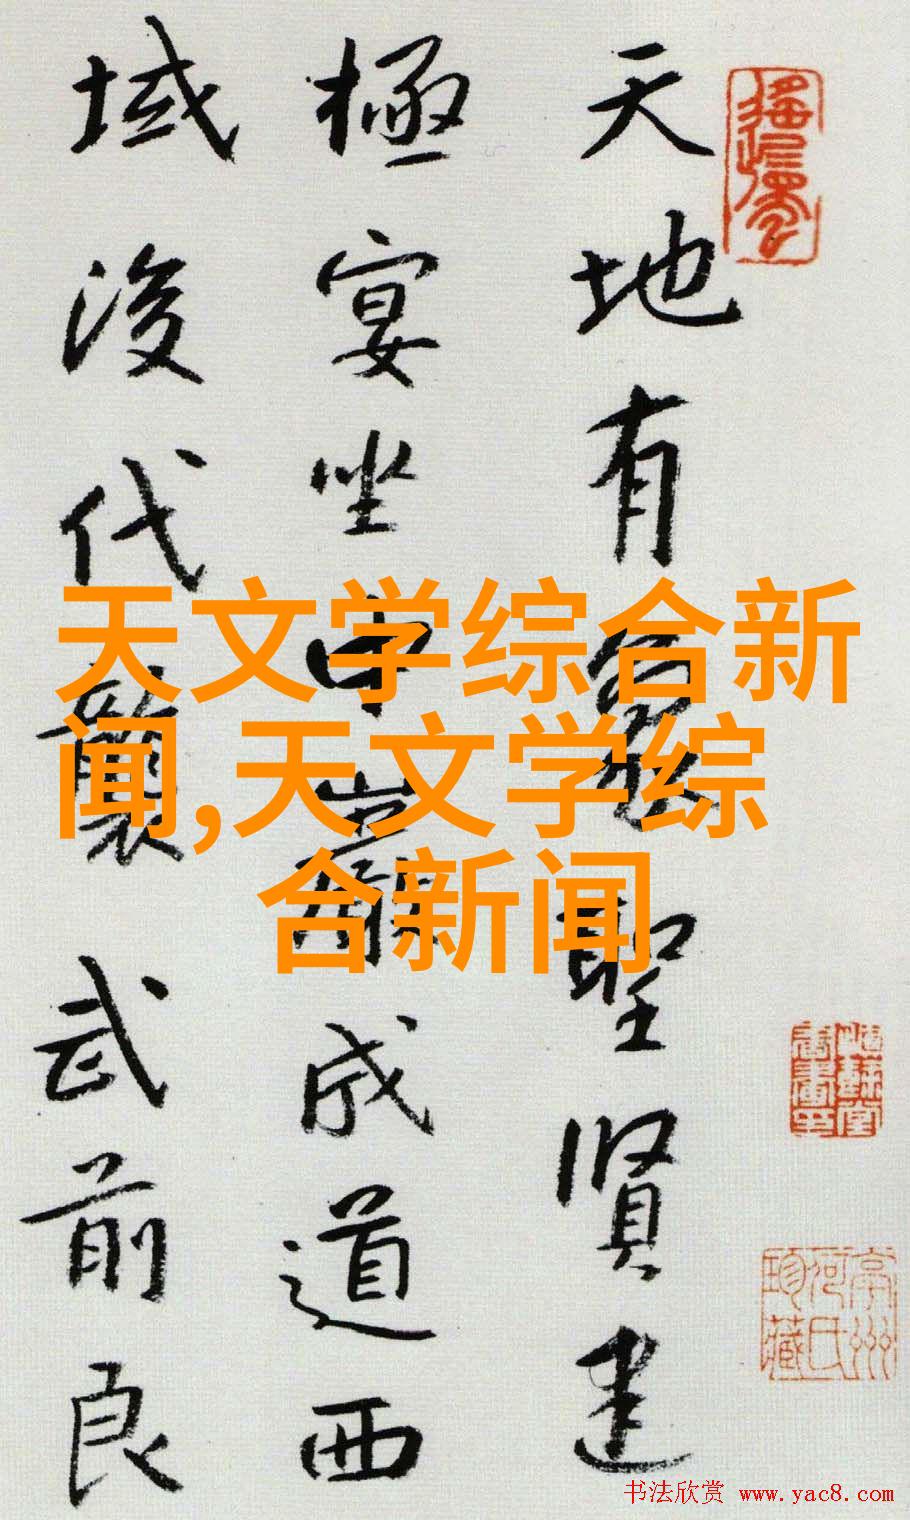 天地有象聖賢建
極宴坐中巖成道西
域後代襲武前良
天文学综合新
闻,天文学综
合新闻
书法欣赏 www.yac8.com